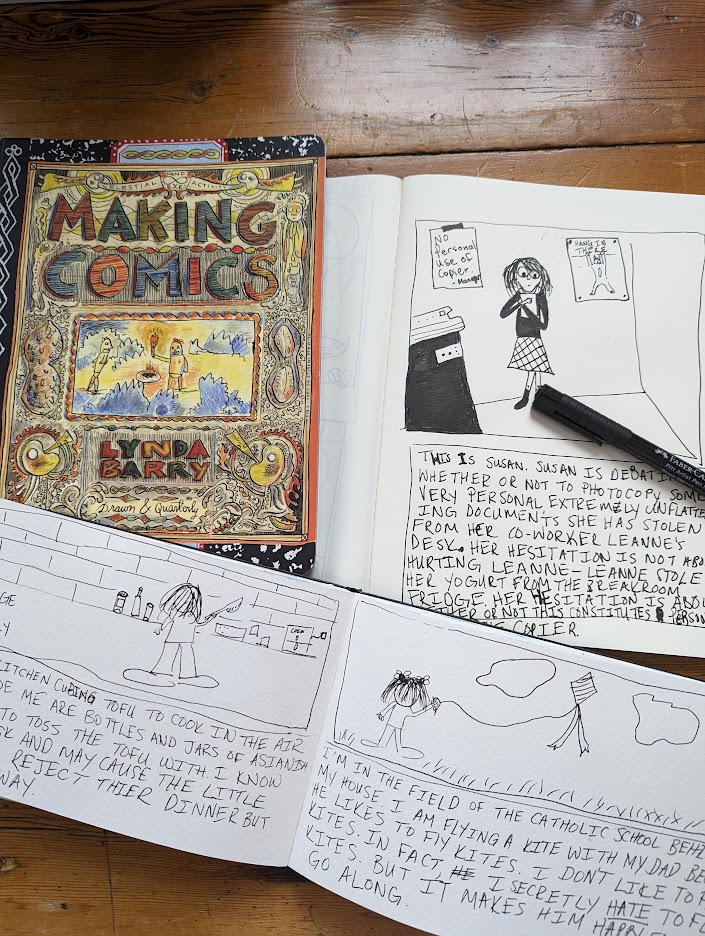 CELESTIAL AND ACTIVITY
MAKING
COMICS
LYNDA
BARRY
Drawn & Quarterly
No
Personal
use of
Copier.
- Manager
HANG IN
THERE
FABER-CA
Pitt Artist Pen
THIS IS SUSAN. SUSAN IS DEBATIN
WHETHER OR NOT TO PHOTOCOPY SOME
VERY PERSONAL EXTREMELY UNFLATTE
ING DOCUMENTS SHE HAS STOLEN
FROM HER CO-WORKER LEANNE'S
DESK. HER HESITATION IS NOT ABO
HURTING LEANNE- LEANNE STOLE
HER YOGURT FROM THE BREAKROOM
FRIDGE. HER HESITATION IS ABOU
OR NOT THIS CONSTITUTES PERSON
COPIER.
KITCHEN CUBING TOFU TO COOK IN THE AIR
DE ME ARE BOTTLES AND JARS OF ASIANISH
TO TOSS THE TOFU WITH. I KNOW
SK AND MAY CAUSE THE LITTLE
REJECT THIER DINNER BUT
WAY.
I'M IN THE FIELD OF THE CATHOLIC SCHOOL BEHI
MY HOUSE. I AM FLYING A KITE WITH MY DAD BE
HE LIKES TO FLY KITES. I DON'T LIKE TO F
KITES. IN FACT, HE I SECRETLY HATE TO FL
KITES. BUT IT MAKES HIM HAPPY
GO ALONG.